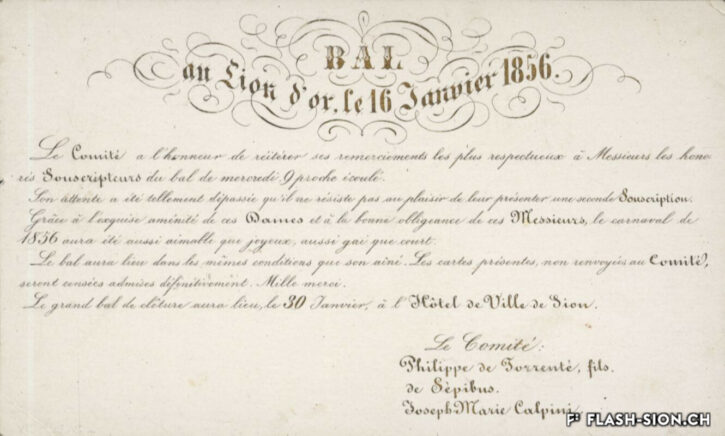 BAL
au Lion d'or, le 16 Janvier 1856.
Le Comité a l'honneur de réitérer ses remerciements les plus respectueux à Messieurs les hono
rés Souscripteurs du bal de mercredi 9 proche écoulé.
Son attente a été tellement dépassée qu'il ne résiste pas au plaisir de leur présenter une seconde Souscription.
Grâce à l'exquise aménité de ces Dames et à la bonne obligeance de ces Messieurs, le carnaval de
1856 aura été aussi aimable que joyeux, aussi gai que court.
Le bal aura lieu dans les mêmes conditions que son aîné. Les cartes présentes, non renvoyées au Comité,
seront censées admises définitivement. Mille merci.
Le grand bal de clôture aura lieu, le 30 Janvier, à l'Hôtel de Ville de Sion.
Le Comité:
Philippe de Torrenté, fils.
de Sépibus.
Joseph-Marie Calpini
FLASH-SION.CH